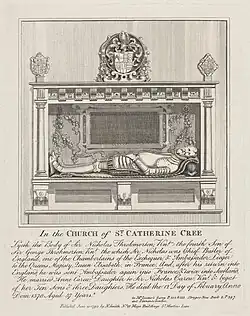 In the CHURCH of St. CATHERINE CREE
Lyeth the Body of Sir Nicholas Throkmorton Knt. the fourth Son of
Sir George Throkmorton Knt. the which Sir Nicholas was Chief Butler of
England, one of the Chamberlains of the Exchequer & Ambassador Lieger
to the Queens Majesty Queen Elizabeth in France; And after his return into
England he was sent Ambassador again into France & twice into Scotland
He married Anne Carew Daughter to Sir Nicholas Carew Knt. & begat
of her Ten Sons & three Daughters. He died the 12 Day of February Anno
Dom 1570 Aged 57 Years.